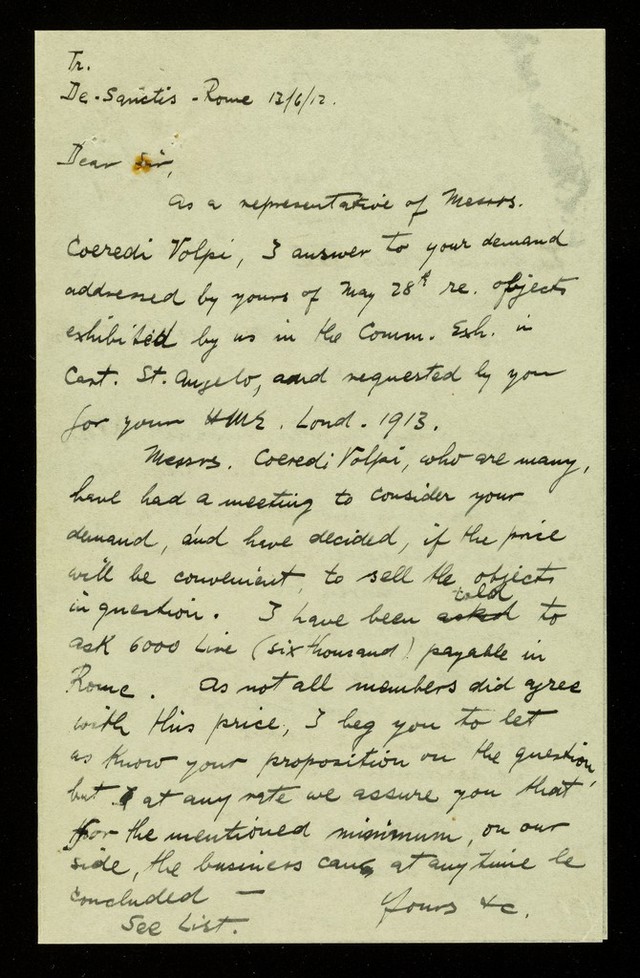 Tr.
De-Sanctis - Rome 12/6/12.
Dear Sir,
As a representative of Messrs.
Coeredi Volpi, I answer to your demand
addressed by yours of May 28th re. objects
exhibited by us in the Comm. Exh. in
Cast. St. Angelo, and requested by you
for your HME. Lond. 1913.
Messrs. Coeredi Volpi, who are many,
have had a meeting to consider your
demand, and have decided, if the price
will be convenient, to sell the objects
in question. I have been asked told to
ask 6000 Lire (six thousand) payable in
Rome. As not all members did agree
with this price, I beg you to let
us know your proposition on the question,
but at any rate we assure you that
for the mentioned minimum, on our
side, the business can at any time be
concluded —
Yours &c.
See List.